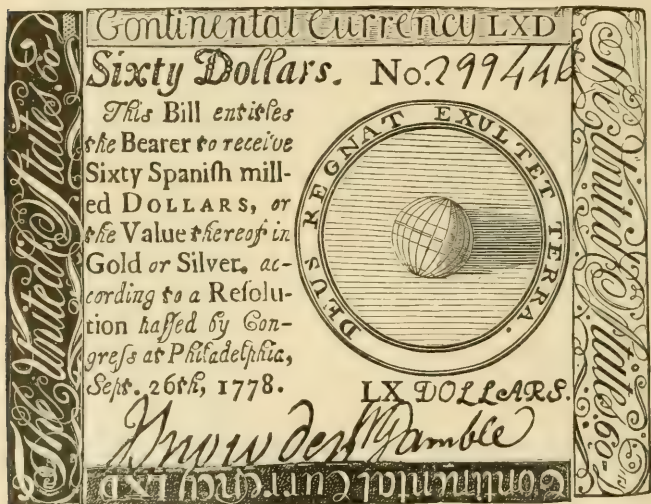 Continental Currency LXD
Sixty Dollars. No. 299446
This Bill entitles
the Bearer to receive
Sixty Spaniſh mill-
ed DOLLARS, or
the Value thereof in
Gold or Silver, ac-
cording to a Reſolu-
tion paſſed by Con-
greſs at Philadelphia,
Sept. 26th, 1778.
DEUS REGNAT EXULTET TERRA.
LX DOLLARS.
J Snowden W Gamble
Continental Currency LXD
The United States.60-
The United States.60-